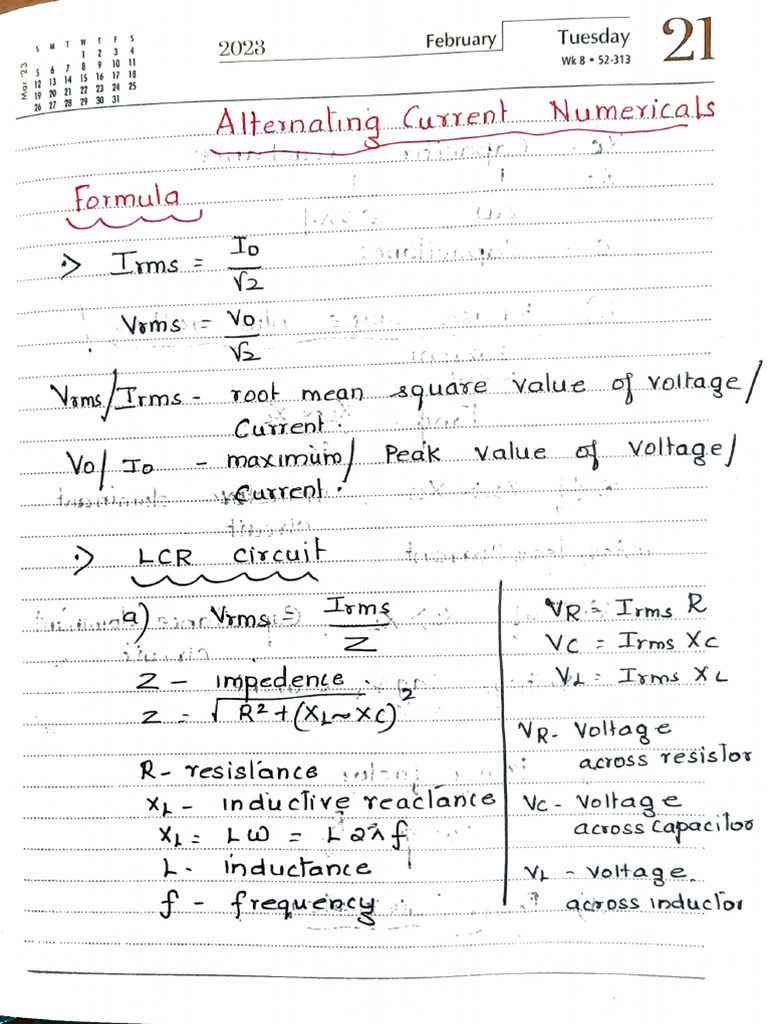 Mar '23
S M T W T F S
1 2 3 4
5 6 7 8 9 10 11
12 13 14 15 16 17 18
19 20 21 22 23 24 25
26 27 28 29 30 31
2023
February
Tuesday
Wk 8 • 52-313
21
Alternating Current Numericals
Formula
:> Irms = I0/√2
Vrms = V0/√2
Vrms/Irms - root mean square value of voltage/
Current.
V0/I0 - maximum/ Peak value of voltage/
Current.
:> LCR circuit
a) Vrms = Irms/Z
Z - impedence.
Z = √R² + (XL ~ XC)²
R - resistance
XL - inductive reactance
XL = Lω = L2πf
L - inductance
f - frequency
VR = Irms R
VC = Irms XC
VL = Irms XL
VR - Voltage
across resistor
VC - Voltage
across capacitor
VL - voltage
across inductor